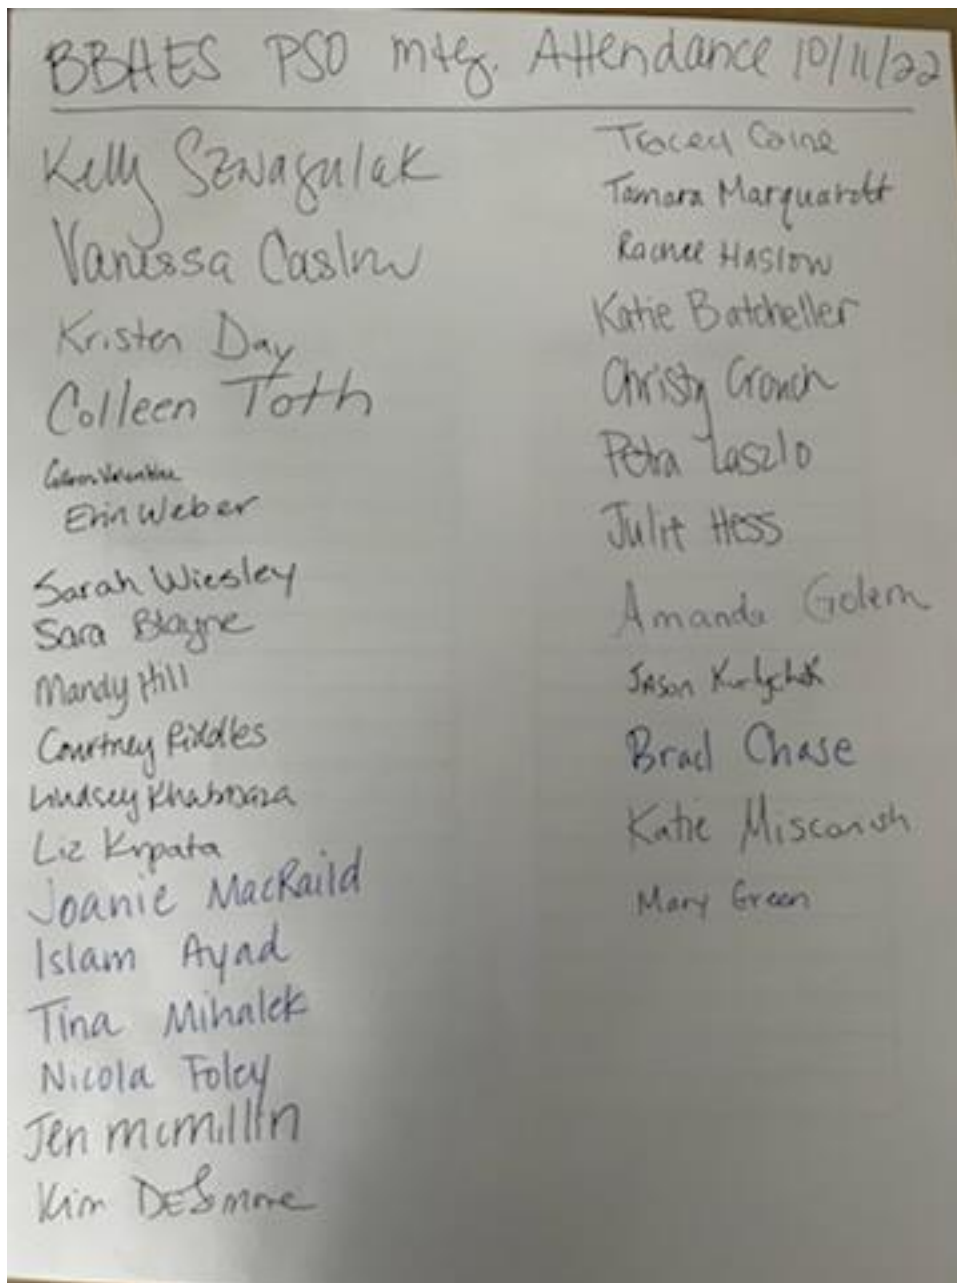 BBHES PSO mtg. Attendance 10/11/22
Kelly Szwagulak
Vanessa Caslow
Kristen Day
Colleen Toth
Colleen Valentine
Erin Weber
Sarah Wiesley
Sara Blayne
Mandy Hill
Courtney Riddles
Lindsey
Liz Krpata
Joanie MacRaild
Islam Ayad
Tina Mihalek
Nicola Foley
Jen mcmillin
Kim
Tracey Caine
Tamara Marquardt
Rachel Haslow
Katie Batcheller
Christy Crouch
Petra Laszlo
Julie Hess
Amanda Golem
Jason
Brad Chase
Katie
Mary Green